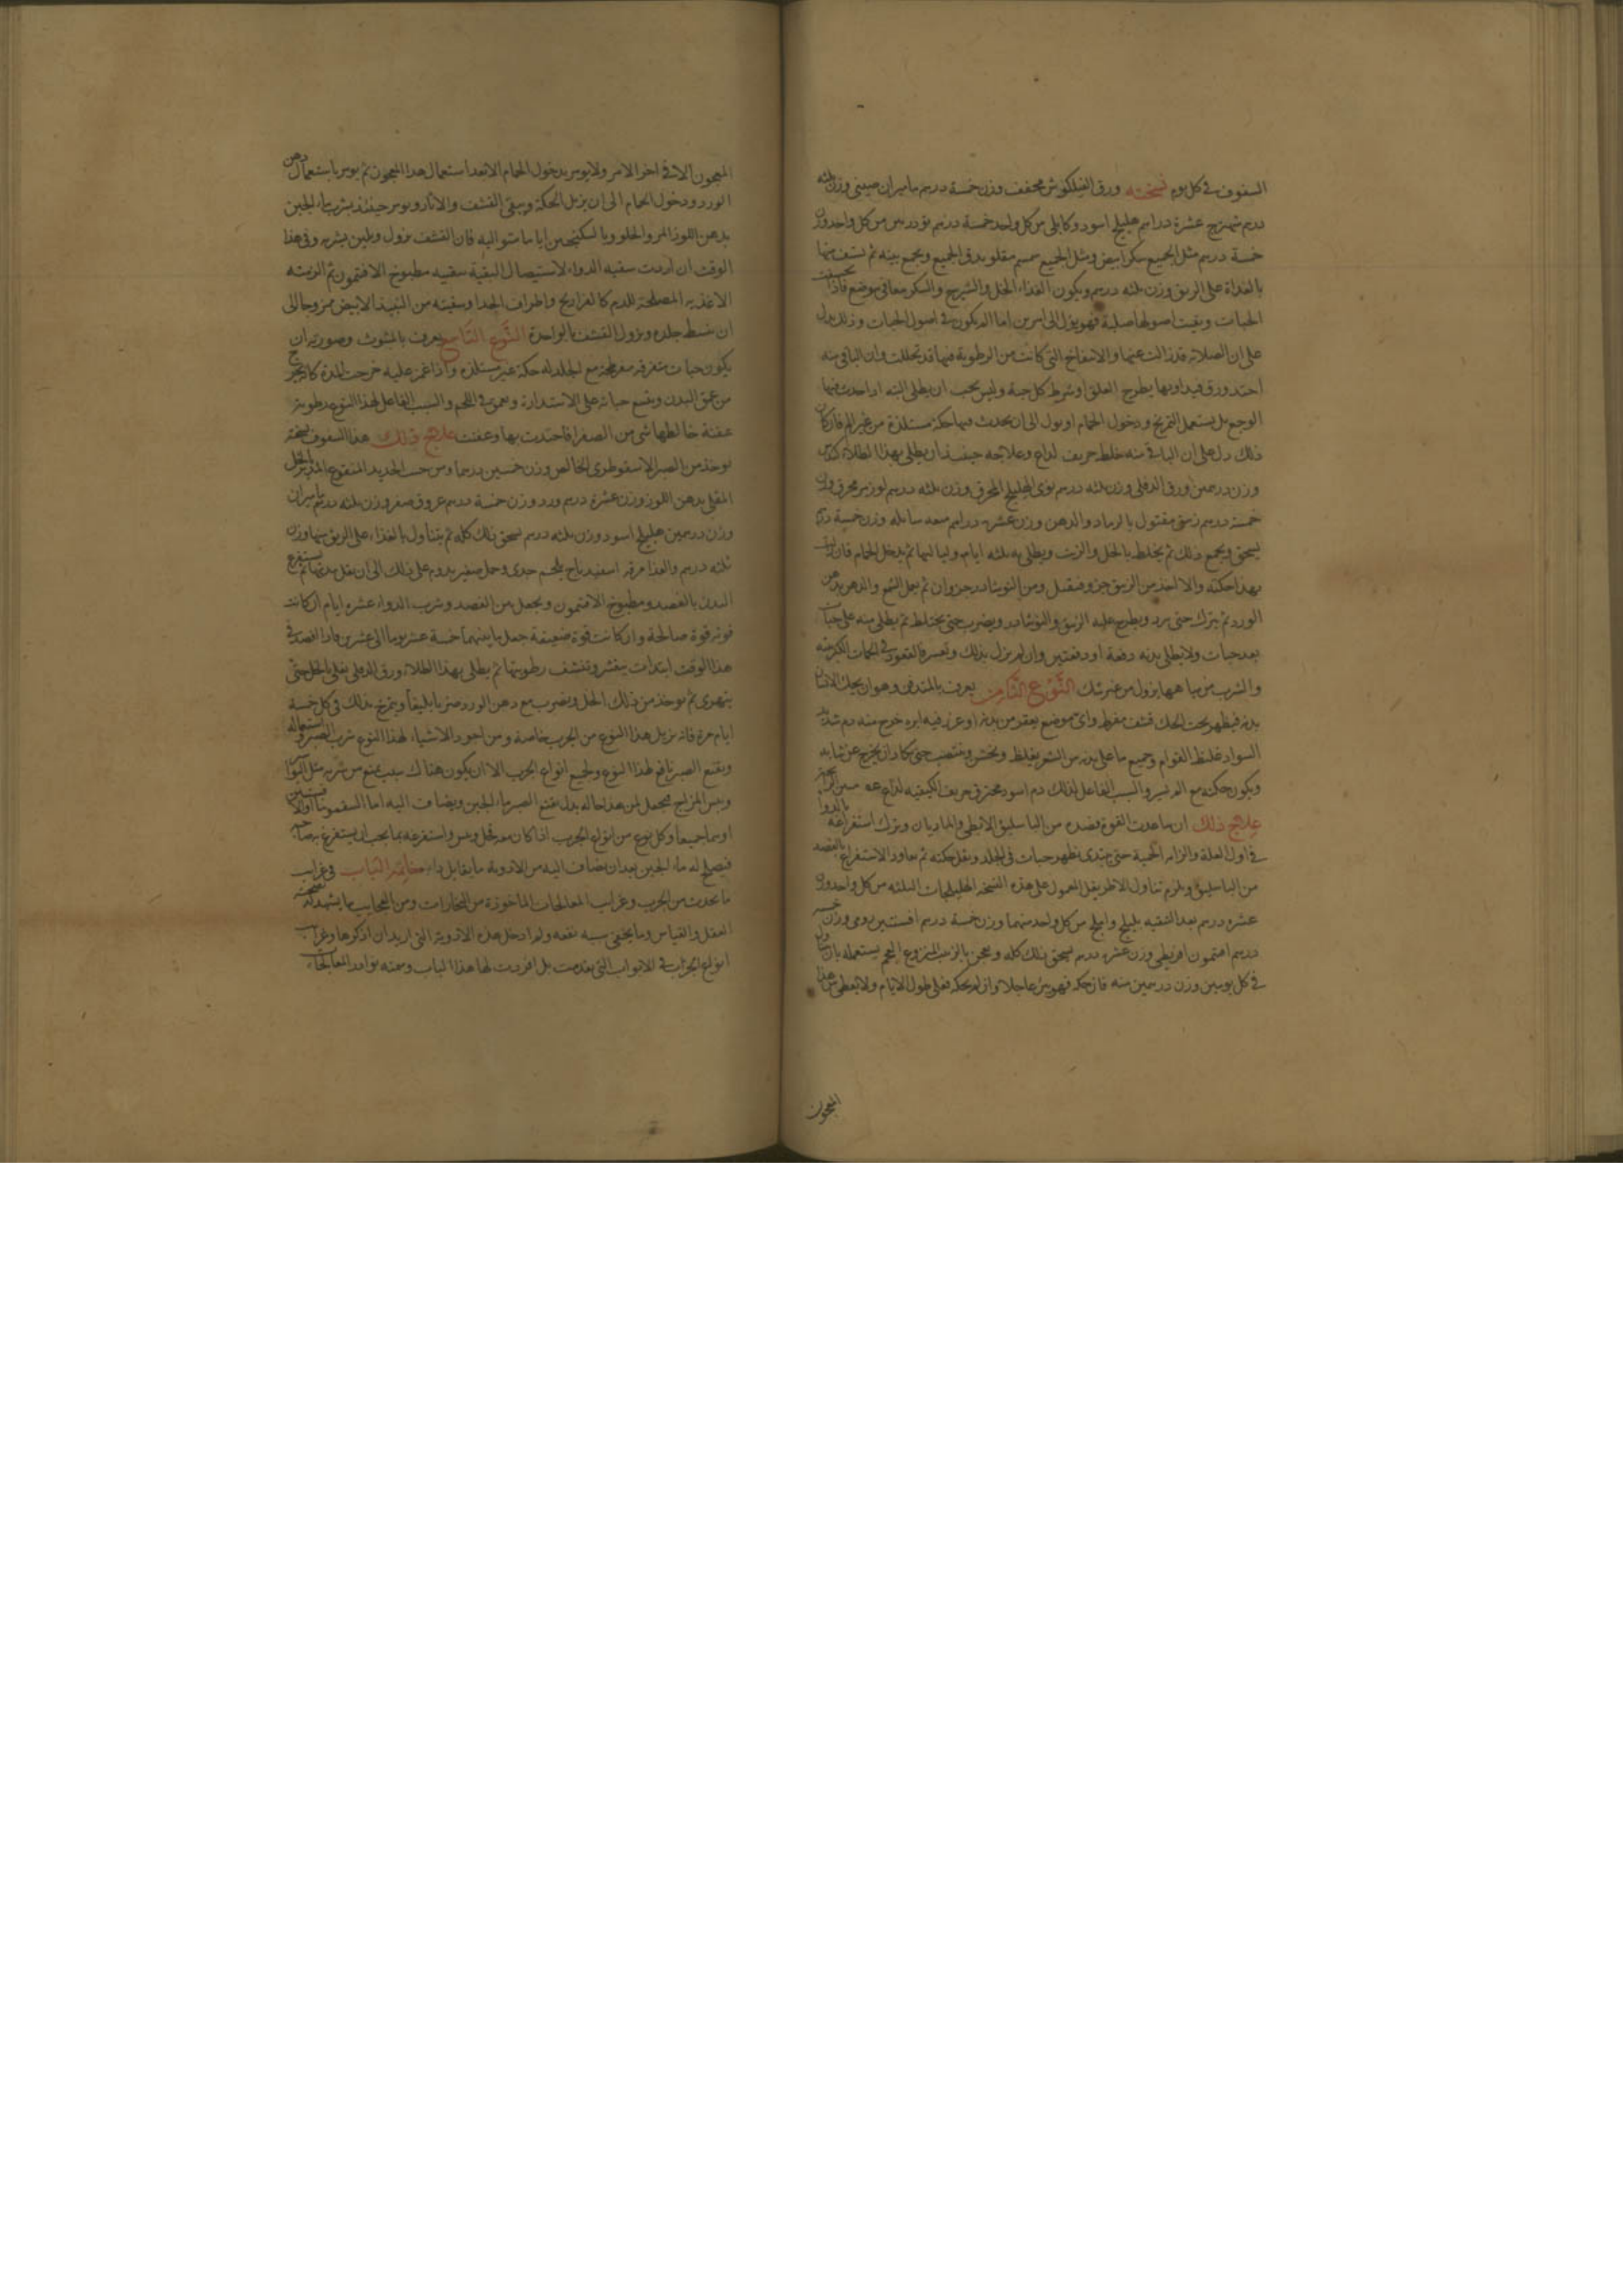 السفوف في كل يوم نسخته ورق الفيلكوش مجفف وزن خمسة درهم ماميران صيني وزن ثلثه
درهم شهترج عشرة دراهم هليلج اسود وكابلى من كل واحد خمسة درهم من كل واحد وزن
خمسة درهم مثل الجميع سكر ابيض ومثل الجميع سمسم مقلو يدق الجميع ويجمع بينه ثم يستف منها
بالغداة على الريق وزن ثلثه درهم ويكون الغذاء الخل والشيرج والسكر معا في موضع فاذا
الحبات وبقيت اصولها صلبة فهو يؤل الى امرين اما الم يكون في اصول الحبات وذلك يدل
على ان الصلابه قد زالت عنها والانتفاخ التى كانت من الرطوبة فيها قد تحللت وان الباقي منه
احتد ورق فيداويها بطرح العلق او شرط كل حبة وليس يجب ان يطلى البته اذا حدث فيها
الوجع بل يستعمل التمريخ ودخول الحمام اويول الى ان يحدث فيها حكة مستلذة من غير الم فان كان
ذلك دل على ان الباقي منه خلط حريف لذاع وعلاجه حينئذ ان يطلى بهذا الطلاء
وزن درهمين ورق الدفلى وزن ثلثه درهم نوى الهليلج المحرق وزن ثلثه درهم لوز مر محرق وزن
خمسة درهم زيبق مقتول بالرماد والدهن وزن عشره دراهم ميعه سائله وزن خمسة
يسحق ويجمع ذلك ثم يخلط بالخل والزيت ويطلى به ثلثه ايام ولياليها ثم يدخل الحمام فان زالت
بهذا حكته والا اخذ من الزيبق جزو فيقتل ومن النوشادر جزوان ثم يعمل الشمع والدهن بدهن
الورد ثم يترك حتى يبرد ويطرح عليه الزيبق والنوشادر ويضرب حتى يختلط ثم يطلى منه على حبات
بعد حبات ولا يطلى بدنه دفعة او دفعتين وان لم يزل بذلك ولعسره فالقعود في الحمات الكبريتيه
والشرب من مياهها يزول من غير شك النوع الثامن يعرف وهو ان يحك الانسان
بدنه فيظهر تحت الحك قشف مفرط واى موضع يعقر من بدنه او غرز فيه ابره خرج منه دم شديد
السواد غليظ القوام وجميع ما على بدنه من الشعر يغلظ ويخشن وينتصب حتى كاد ان يخرج عن ثيابه
ويكون حكته مع الم يسير والسبب الفاعل لذلك دم اسود محترق حريف الكيفيه لذاع
علاج ذلك ان ساعدت القوة فصده من الباسليق الابطى والماديان وترك استفراغه بالدوا
في اول العلة والزامه الحمية حتى يبتدى يظهر حبات في الجلد ويقل حكته ثم يعاود الاستفراغ بالفصد
من الباسليق ويلزم تناول الاطريفل المعمول على هذه النسخه الهليلجات الثلثه من كل واحد وزن
عشره درهم بعد التنقيه بليلج واملج من كل واحد منهما وزن خمسة درهم افسنتين رومى وزن خمسه
درهم افتيمون اقريطى وزن عشره درهم يسحق ذلك كله ويعجن بالزبيب المنزوع العجم يستعمله
في كل يومين وزن درهمين منه فان حكه فهو يبرئ عاجلا وان لم يحكه فعلى طول الايام ولا يعطى من هذا
المعجون
المعجون الا في اخر الامر ولا يومر بدخول الحمام الا بعد استعمال هذا المعجون ثم يومر باستعمال دهن
الورد ودخول الحمام الى ان يزيل الحكة ويبقى القشف والاثار ويومر حينئذ بشرب ماء الجبن
بدهن اللوز المر والحلو وبالسكنجبين اياما متواليه فان القشف يزول ويلين بشرته وفي هذا
الوقت ان اردت سقيه الدواء لاستيصال البقية سقيه مطبوخ الافتيمون ثم الزمته
الاغذيه المصلحة للدم كالفراريج واطراف الجدا وسقيته من النبيذ الابيض ممزوجا الى
ان ينبسط جلده ويزول القشف بالواحدة النوع التاسع يعرف بالمبثوث وصورته ان
يكون حبات متفرقه مفرطحة مع الجلد له حكة غير مستلذه واذا غمز عليه خرجت المدة كانها تخرج
من عمق البدن ويتسع حباته على الاستدارة ويعمق في اللحم والسبب الفاعل لهذا النوع رطوبة
عفنة خالطها شى من الصفرا فاحتدت بها وعفنت علاج ذلك هذا السفوف نسخته
يوخذ من الصبر الاسقوطرى الخالص وزن خمسين درهما ومن خبث الحديد المنقوع المدبر بالخل
المقلى بدهن اللوز وزن عشره درهم ورد وزن خمسة درهم عروق صفر وزن ثلثه درهم ماميران
وزن درهمين هليلج اسود وزن ثلثه درهم يسحق ذلك كله ثم يتناول بالغذاء على الريق منها وزن
ثلثه درهم والغذا مرقه اسفيدباج بلحم جدى وحمل صغير يدوم على ذلك الى ان يقل مدتها ثم يستفرغ
البدن بالفصد ومطبوخ الافتيمون ويجعل من الفصد وشرب الدواء عشره ايام ان كانت
قوته قوة صالحة وان كانت قوة ضعيفة جعل ما بينهما خمسة عشر يوما الى عشرين فاذا افصد في
هذا الوقت ابتدات ينقشر وتنشف رطوبتها ثم يطلى بهذا الطلاء ورق الدفلى يغلى بالخل حتى
يتهرى ثم يوخذ من ذلك الخل ويضرب مع دهن الورد ضربا بليغا ويتمرخ بذلك في كل خمسة
ايام مرة فانه يزيل هذا النوع من الجرب خاصة ومن اجود الاشياء لهذا النوع شرب الصبر واستعماله
ونقيع الصبر نافع لهذا النوع ولجميع انواع الجرب الا ان يكون هناك سبب يمنع من شربه مثل البواسير
ويبس المزاج فيجعل لمن هذا حاله بدل نقيع الصبر ماء الجبن ويضاف اليه اما السقمونيا او الافسنتين
او هما جميعا وكل نوع من انواع الجرب اذا كان معه قحل ويبس واستفرغه بما يجب ان يستفرغ به صاحبه
فيصلح له ماء الجبن بعد ان يضاف اليه من الادوية ما يقابل دائه خاتمة الباب في غرايب
ما يحدث من الجرب وغرايب المعالجات الماخوذة من التجارات ومن العجايب ما يشهد له بصحته
العقل والقياس وما يخفى سببه نفعه ولم ادخل هذه الادوية التى اريد ان اذكرها وغرايب
انواع الجرب في الابواب التى تقدمت بل افردت لها هذا الباب وسميته نوادر المعالجات